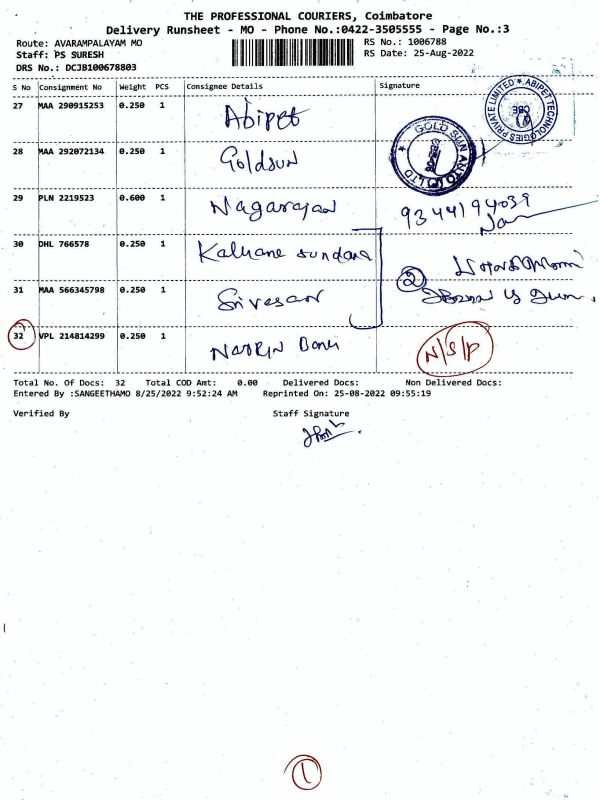 THE PROFESSIONAL COURIERS, Coimbatore
Delivery Runsheet - MO - Phone No.:0422-3505555 - Page No.:3
Route: AVARAMPALAYAM MO RS No.: 1006788
Staff: PS SURESH RS Date: 25-Aug-2022
DRS No.: DCJB100678803
S No Consignment No Weight PCS Consignee Details Signature
27 MAA 290915253 0.250 1 Abipet
ABIPET TECHNOLOGIES PRIVATE LIMITED CBE
28 MAA 292072134 0.250 1 Goldsun
GOLD SUN AUTO LTD
29 PLN 2219523 0.600 1 Nagarajan 9344194039
30 DHL 766578 0.250 1 Kalyane sundara
31 MAA 566345798 0.250 1 Srivasan 2
32 VPL 214814299 0.250 1 Nasrin Banu N/S/P
Total No. Of Docs: 32 Total COD Amt: 0.00 Delivered Docs: Non Delivered Docs:
Entered By :SANGEETHAMO 8/25/2022 9:52:24 AM Reprinted On: 25-08-2022 09:55:19
Verified By Staff Signature
1